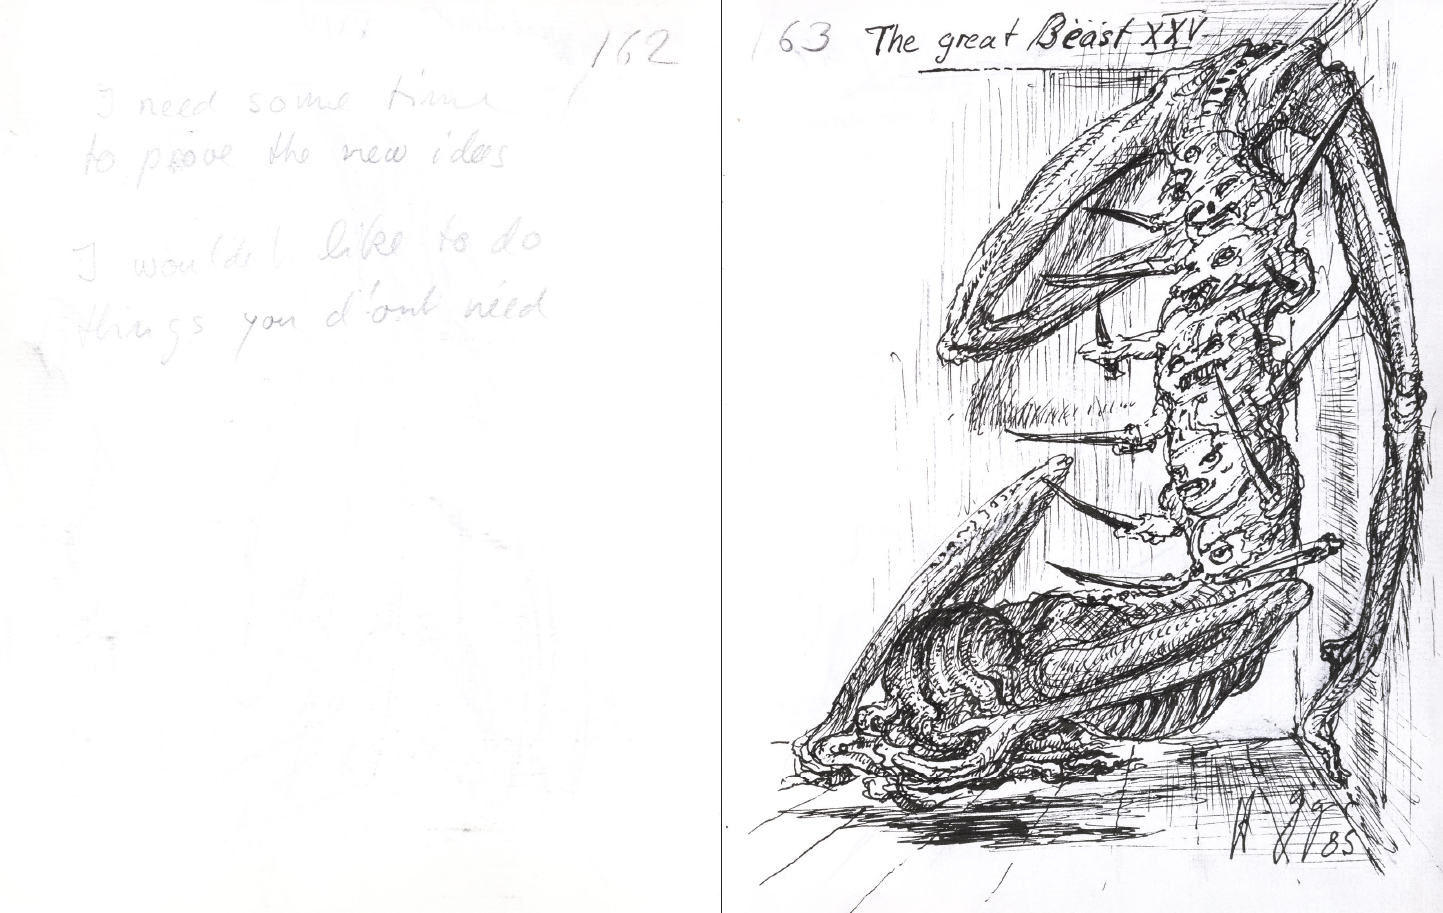 162
I need some time
to prove the new ideas
I would like to do
things you d'ont need
163 The great Beast XXV
85